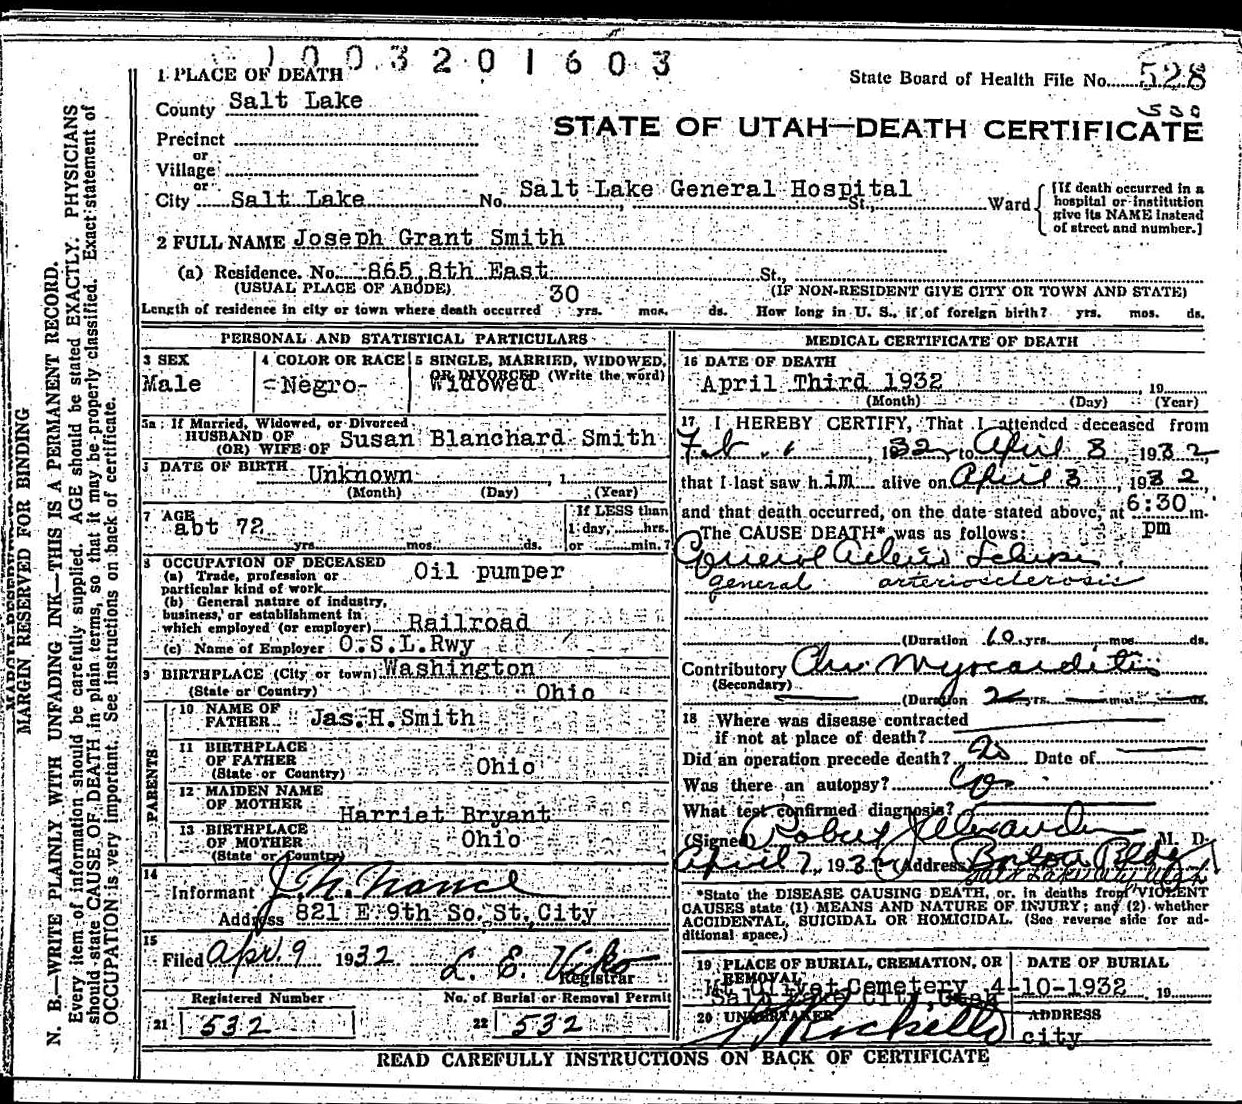 1003201603
1 PLACE OF DEATH
State Board of Health File No. 528
County Salt Lake
530
STATE OF UTAH—DEATH CERTIFICATE
Precinct
or
Village
or
City Salt Lake No. Salt Lake General Hospital St., Ward
[If death occurred in a
hospital or institution
give its NAME instead
of street and number.]
2 FULL NAME Joseph Grant Smith
(a) Residence. No. 865 8th East St.,
(USUAL PLACE OF ABODE) (IF NON-RESIDENT GIVE CITY OR TOWN AND STATE)
Length of residence in city or town where death occurred 30 yrs. mos. ds. How long in U. S., if of foreign birth? yrs. mos. ds.
PERSONAL AND STATISTICAL PARTICULARS
3 SEX
Male
4 COLOR OR RACE
-Negro-
5 SINGLE, MARRIED, WIDOWED,
OR DIVORCED (Write the word)
Widowed
5a If Married, Widowed, or Divorced
HUSBAND OF
(OR) WIFE OF Susan Blanchard Smith
DATE OF BIRTH Unknown , 1
(Month) (Day) (Year)
7 AGE
abt 72
yrs. mos. ds.
If LESS than
1 day, hrs.
or min.?
8 OCCUPATION OF DECEASED
(a) Trade, profession or
particular kind of work Oil pumper
(b) General nature of industry,
business, or establishment in
which employed (or employer) Railroad
(c) Name of Employer O.S.L.Rwy
9 BIRTHPLACE (City or town) Washington
(State or Country) Ohio
PARENTS
10 NAME OF
FATHER Jas.H.Smith
11 BIRTHPLACE
OF FATHER
(State or Country) Ohio
12 MAIDEN NAME
OF MOTHER
Harriet Bryant
13 BIRTHPLACE
OF MOTHER
(State or Country) Ohio
14
Informant J. N. Nance
Address 821 E 9th So. St. City
15
Filed Apr. 9 1932 L. E. Viko
Registrar
Registered Number
21 532
No. of Burial or Removal Permit
22 532
MEDICAL CERTIFICATE OF DEATH
16 DATE OF DEATH
April Third 1932 19
(Month) (Day) (Year)
17 I HEREBY CERTIFY, That I attended deceased from
Feb , 1932 to April 3, 1932,
that I last saw him alive on April 3, 1932,
and that death occurred, on the date stated above, at 6:30 m.
pm
The CAUSE DEATH* was as follows:
General Arterio Sclerosis
general arteriosclerosis
(Duration 10 yrs. mos. ds.
Contributory Chr. Myocarditis
(Secondary)
(Duration 2 yrs. mos. ds.
18 Where was disease contracted
if not at place of death?
Did an operation precede death? no Date of
Was there an autopsy? no
What test confirmed diagnosis?
(Signed) Robert J. Alexander M. D.
April 7, 1932 (Address) Boston Bldg
*State the DISEASE CAUSING DEATH, or, in deaths from VIOLENT
CAUSES state (1) MEANS AND NATURE OF INJURY; and (2) whether
ACCIDENTAL, SUICIDAL OR HOMICIDAL. (See reverse side for ad-
ditional space.)
19 PLACE OF BURIAL, CREMATION, OR
REMOVAL
Mt Olivet Cemetery
Salt Lake City, Utah
DATE OF BURIAL
4-10-1932 19
20 UNDERTAKER
ADDRESS
city
READ CAREFULLY INSTRUCTIONS ON BACK OF CERTIFICATE
MARGIN RESERVED FOR BINDING
N. B.—WRITE PLAINLY WITH UNFADING INK—THIS IS A PERMANENT RECORD.
Every item of information should be carefully supplied. AGE should be stated EXACTLY. PHYSICIANS
should state CAUSE OF DEATH in plain terms, so that it may be properly classified. Exact statement of
OCCUPATION is very important. See instructions on back of certificate.